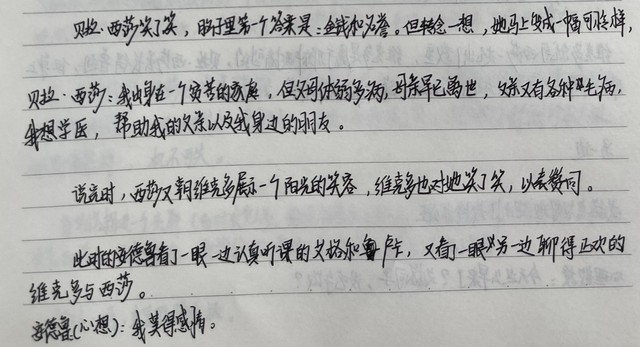 贝拉·西莎笑了笑，脑子里第一个答案是：金钱和名誉。但转念一想，她马上变成一幅可怜样，
贝拉·西莎：我出身在一个贫苦的家庭，但父母体弱多病，母亲早已离世，父亲又有各种毛病，
我想学医，帮助我的父亲以及我身边的朋友。
说完时，西莎又朝维克多展示一个阳光的笑容，维克多也对她笑了笑，以表赞同。
此时的安德鲁看了一眼一边认真听课的艾格和卢卡，又看了一眼另一边聊得正欢的
维克多与西莎。
安德鲁(心想)：我莫得感情。